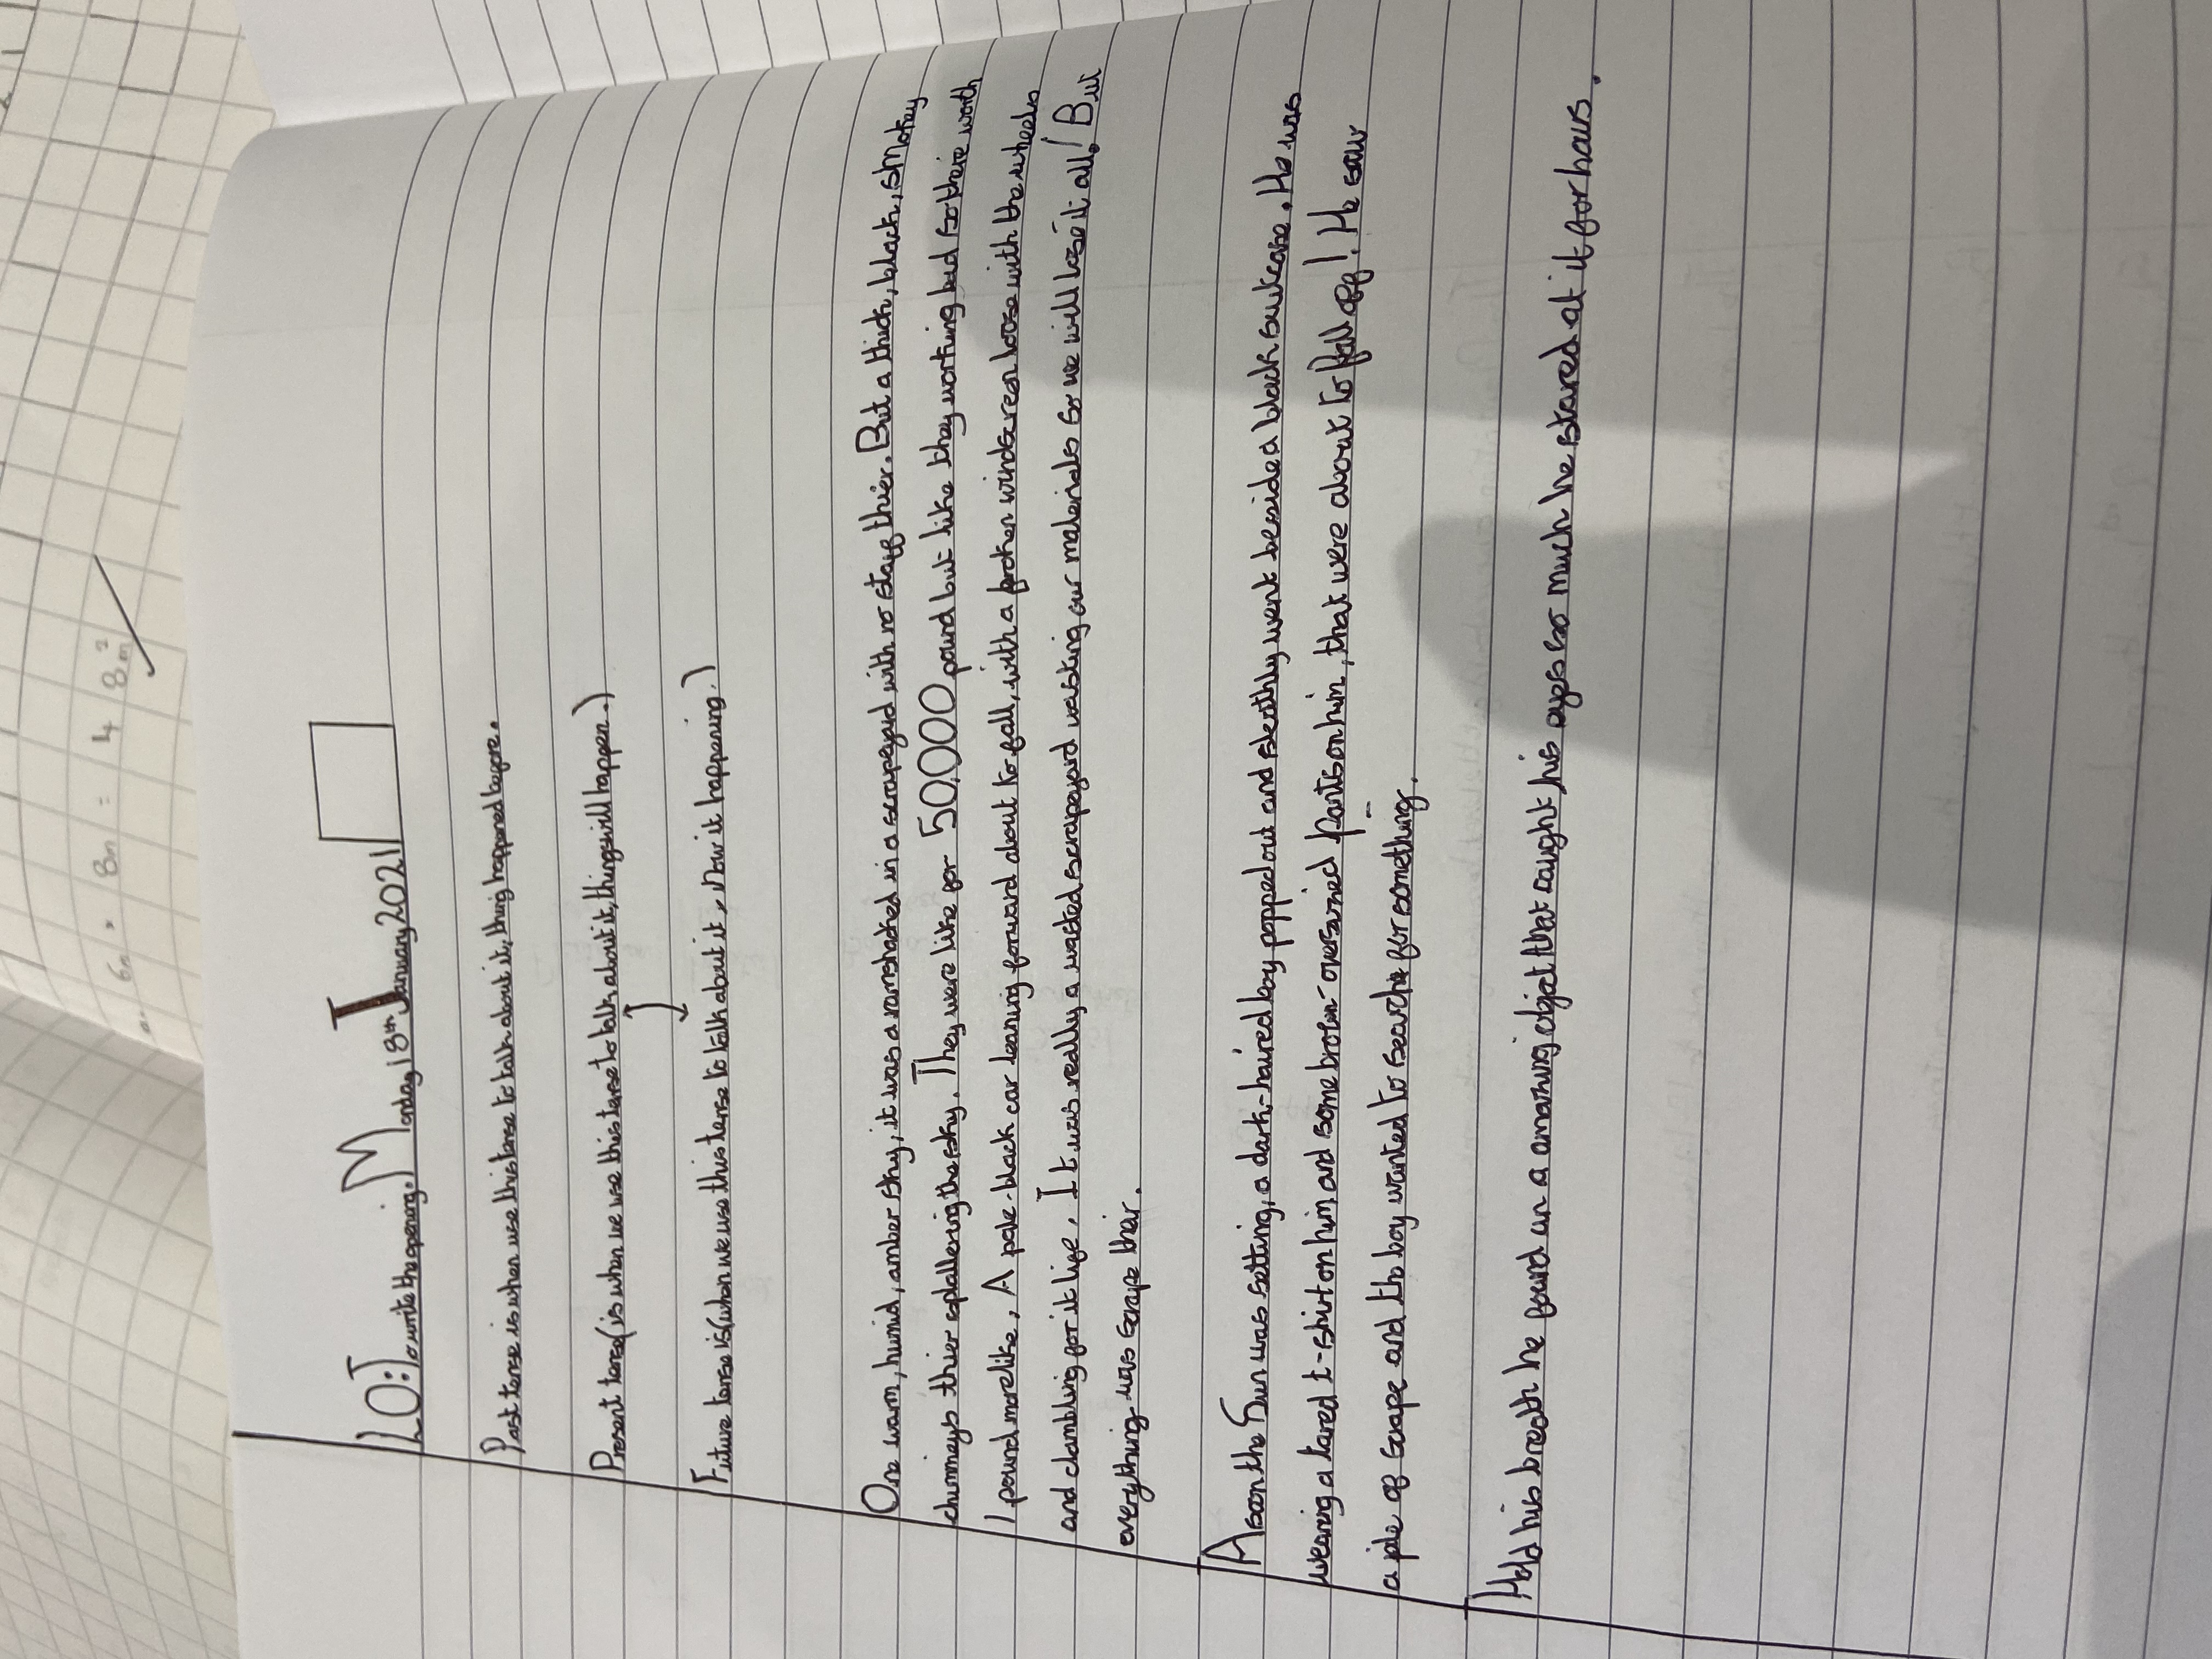 LO: To write the opening. Monday 18th January 2021
Past tense is when use this tense to talk about it, thing happened before.
Present tense (is when we use this tense to talk about it, things will happen.)
Future tense is (when we use this tense to talk about it, now it happening.)
One warm, humid, amber sky, it was a ramshacked in a scrapeyard with no staff thier. But a thick, black, smokey
chummeys thier splattering the sky. They were like for 50,000 pound but like they working bad so there worth
1 pound more like, A pale-black car leaning forward about to fall, with a broken windscreen loose with the wheels
and clambling for it life. It was really a wasted scrapeyard wasting our materials so we will lose it all! But
everything was scrape thair.
As soon the Sun was setting, a dark-haired boy popped out and steathly went beside a black suitcase. He was
wearing a tared t-shirt on him and some broken-oversized Pants on him, that were about to fall off! He saw
a pile of scrape and the boy wanted to search for something.
Hold his breath he found an a amazing object that caught his eyes so much he stared at it for hous.
8m = 48m²